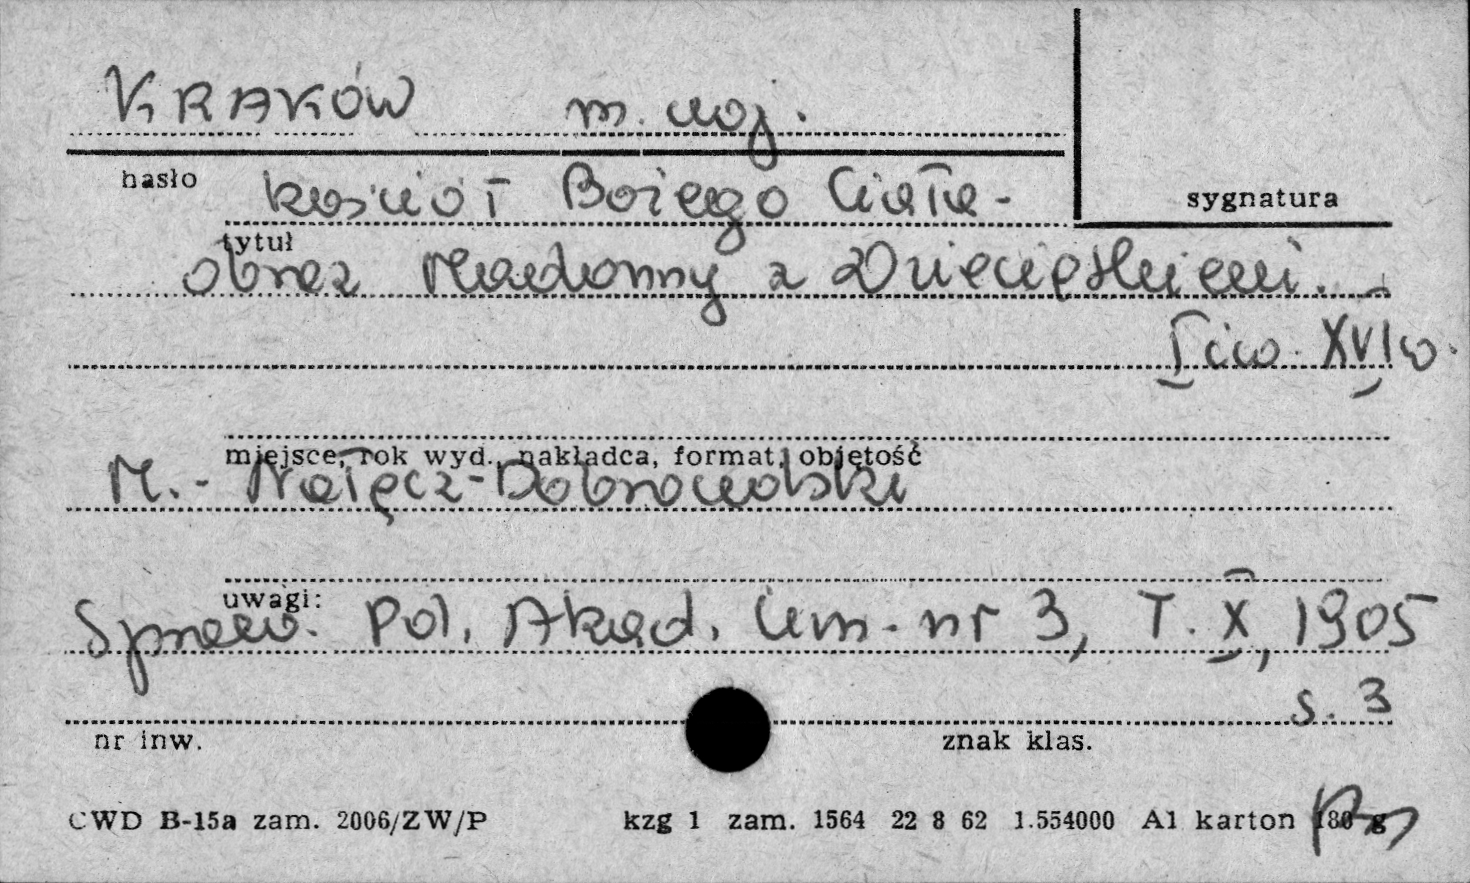 KRAKÓW m. woj.
hasło
kościół Bożego Ciała -
sygnatura
tytuł
obraz Madonny z Dzieciątkiem. -
I ćw. XVI w.
miejsce, rok wyd., nakładca, format, objętość
M. - Nałęcz-Dobrowolski
uwagi:
Spraw. Pol. Akad. Um. nr 3, T. X, 1905
s. 3
nr inw. znak klas.
CWD B-15a zam. 2006/ZW/P kzg 1 zam. 1564 22 8 62 1.554000 A1 karton 180 g